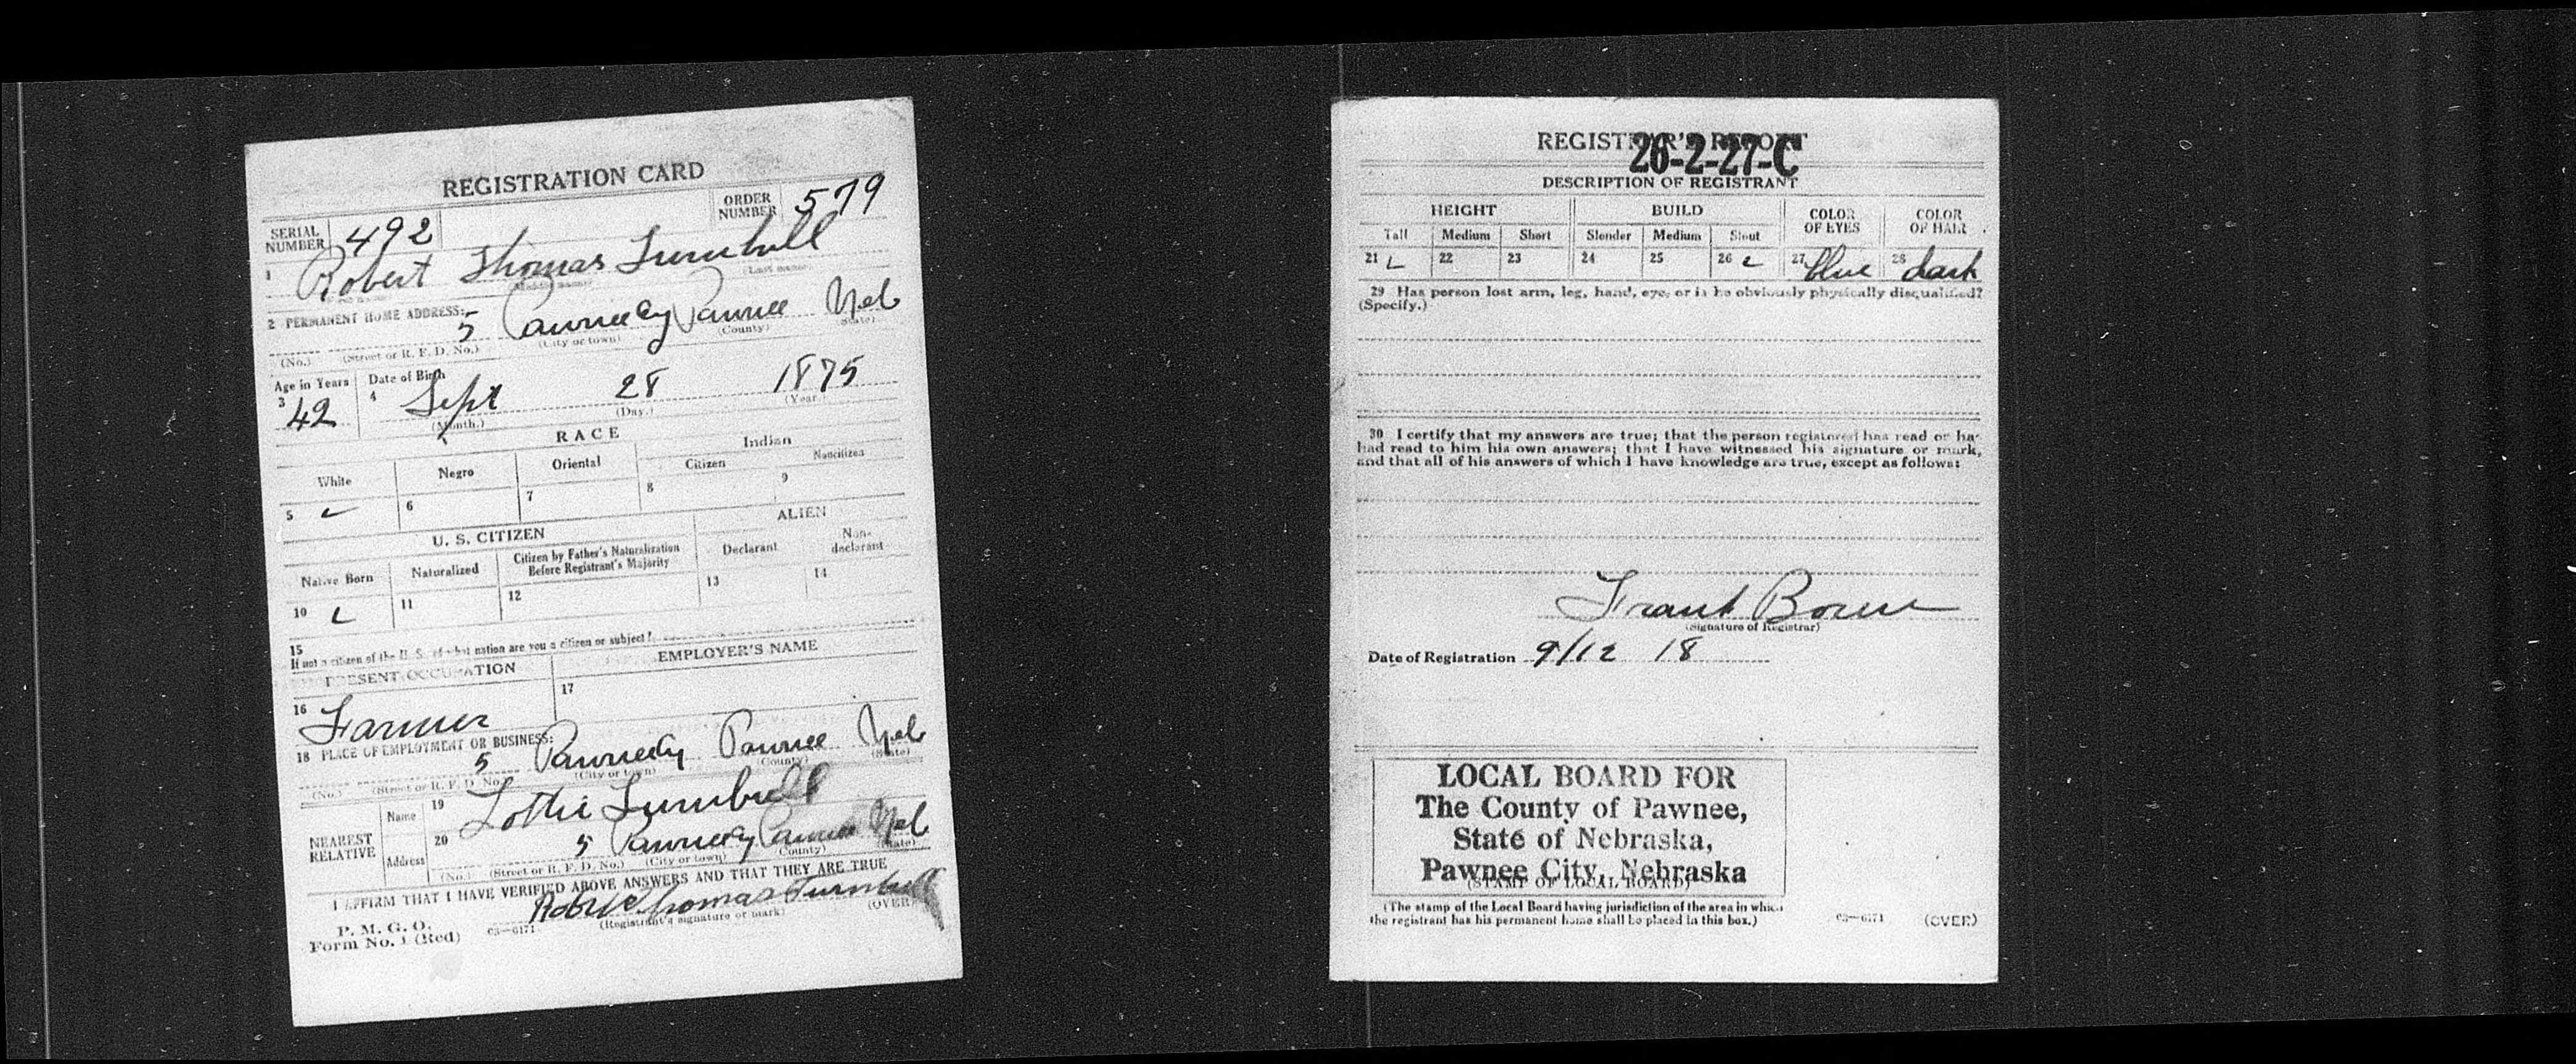 REGISTRATION CARD
SERIAL NUMBER 492
ORDER NUMBER 579
1 Robert Thomas Turnbull
(Middle name) (Last name)
2 PERMANENT HOME ADDRESS:
5 Pawnee Cy Pawnee Neb
(No.) (Street or R. F. D. No.) (City or town) (County) (State)
Age in Years Date of Birth
3 42 4 Sept 28 1875
(Month.) (Day.) (Year.)
RACE
White Negro Oriental Indian
Citizen Noncitizen
5 ✓ 6 7 8 9
U. S. CITIZEN ALIEN
Native Born Naturalized Citizen by Father's Naturalization Before Registrant's Majority Declarant Non-declarant
10 ✓ 11 12 13 14
15
If not a citizen of the U. S., of what nation are you a citizen or subject?
PRESENT OCCUPATION EMPLOYER'S NAME
16 Farmer 17
18 PLACE OF EMPLOYMENT OR BUSINESS:
5 Pawnee Cy Pawnee Neb
(No.) (Street or R. F. D. No.) (City or town) (County) (State)
NEAREST RELATIVE
Name 19 Lottie Turnbull
Address 20 5 Pawnee Cy Pawnee Neb
(No.) (Street or R. F. D. No.) (City or town) (County) (State)
I AFFIRM THAT I HAVE VERIFIED ABOVE ANSWERS AND THAT THEY ARE TRUE
Robt Thomas Turnbull
(Registrant's signature or mark)
P. M. G. O.
Form No. 1 (Red) 03—6171 (OVER)
REGISTRAR'S REPORT
26-2-27-C
DESCRIPTION OF REGISTRANT
HEIGHT BUILD COLOR OF EYES COLOR OF HAIR
Tall Medium Short Slender Medium Stout
21 ✓ 22 23 24 25 26 ✓ 27 blue 28 dark
29 Has person lost arm, leg, hand, eye, or is he obviously physically disqualified?
(Specify.)
30 I certify that my answers are true; that the person registered has read or has
had read to him his own answers; that I have witnessed his signature or mark,
and that all of his answers of which I have knowledge are true, except as follows:
Frank
(Signature of Registrar)
Date of Registration 9/12 18
LOCAL BOARD FOR
The County of Pawnee,
State of Nebraska,
Pawnee City, Nebraska
(STAMP OF LOCAL BOARD)
(The stamp of the Local Board having jurisdiction of the area in which
the registrant has his permanent home shall be placed in this box.)
03—6171 (OVER)